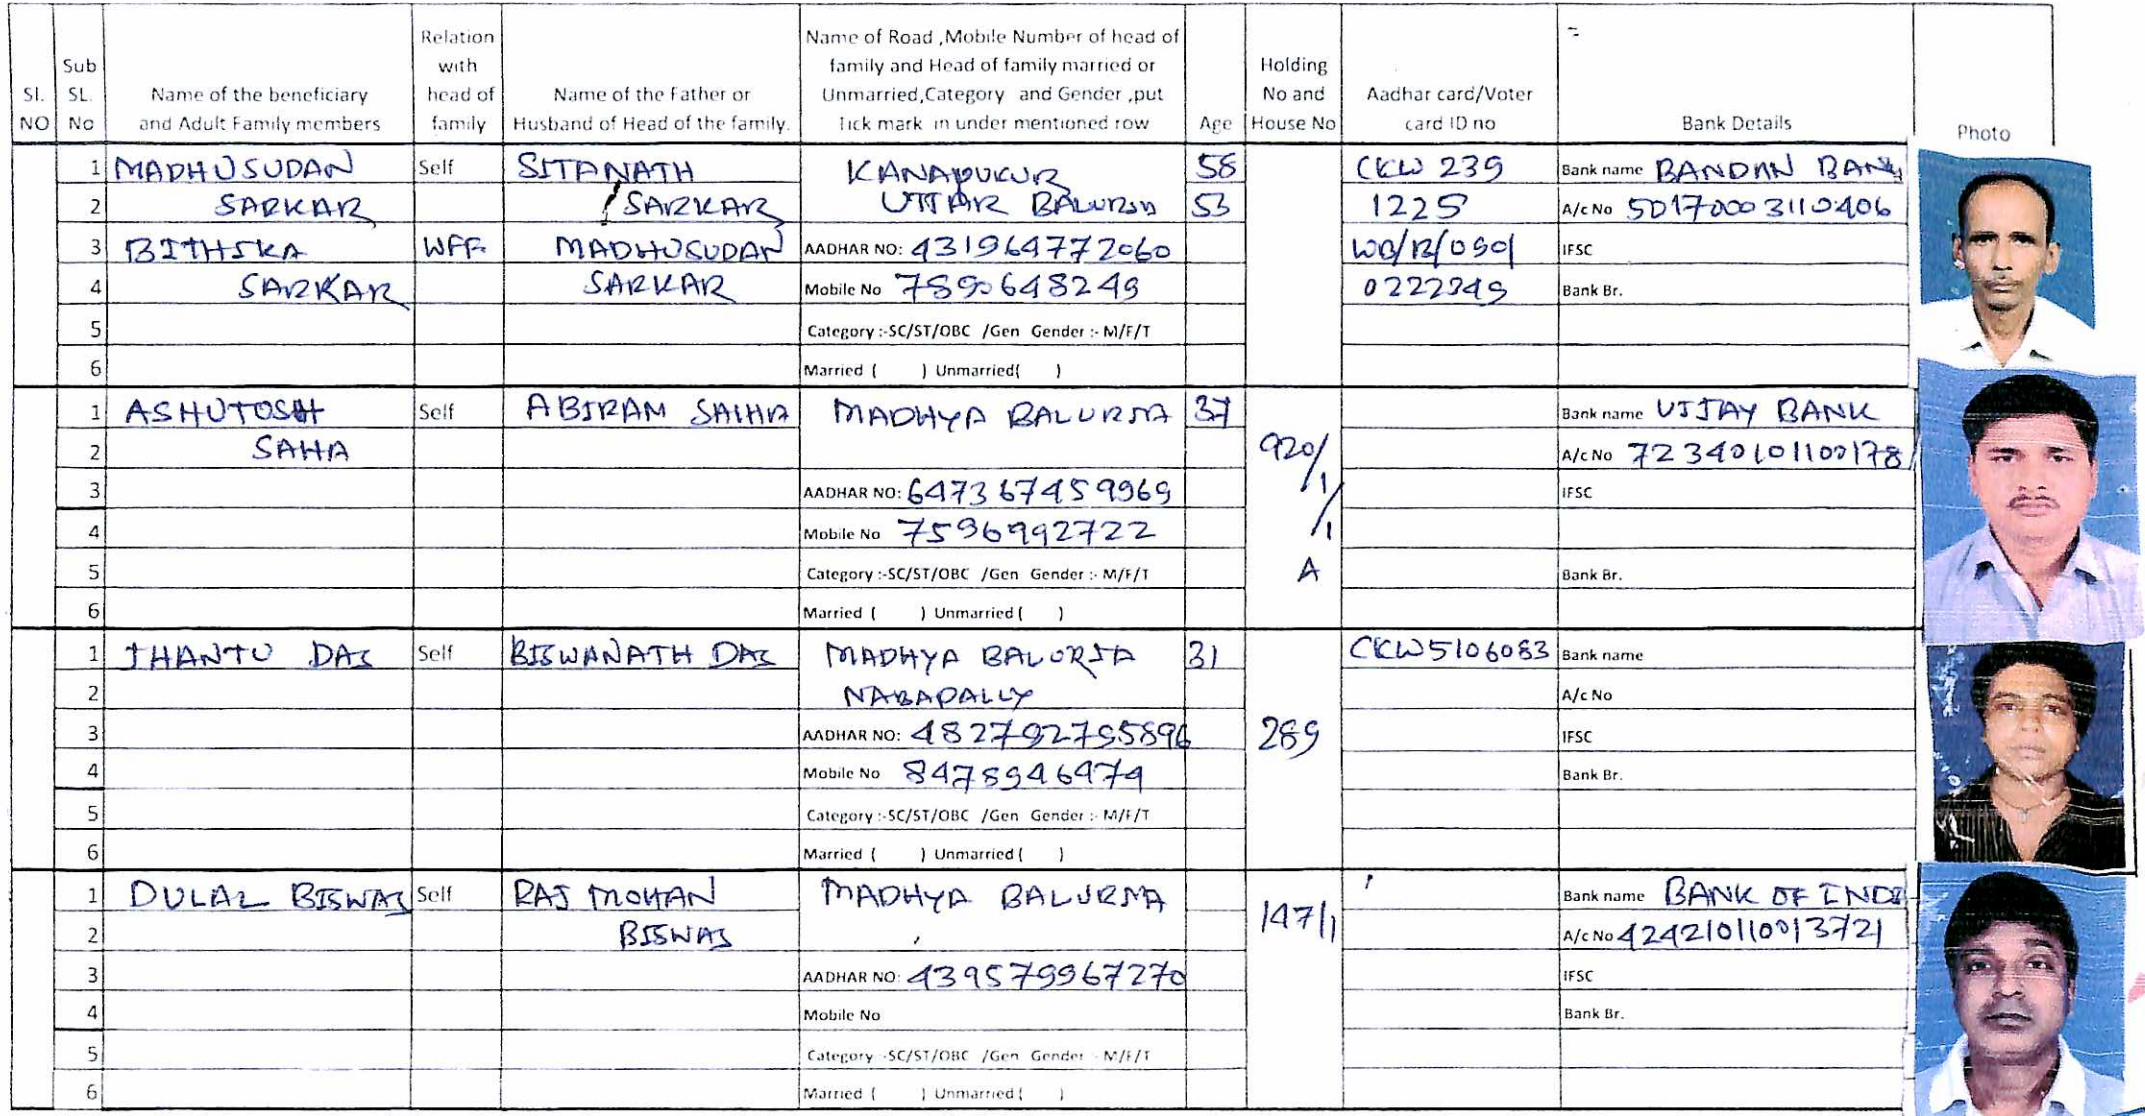 Sl. NO | Sub SL. No | Name of the beneficiary and Adult Family members | Relation with head of family | Name of the Father or Husband of Head of the family. | Name of Road ,Mobile Number of head of family and Head of family married or Unmarried,Category and Gender ,put Tick mark in under mentioned row | Age | Holding No and House No | Aadhar card/Voter card ID no | Bank Details | Photo
1 MADHUSUDAN Self SITANATH KANAPUKUR 58 CKW 239 Bank name BANDAN BANK
2 SARKAR SARKAR UTTAR BALURIA 53 1225 A/c No 50170003110406
3 BITHIKA WFF. MADHUSUDAN AADHAR NO: 431964772060 WB/13/090/ IFSC
4 SARKAR SARKAR Mobile No 7890648249 0222349 Bank Br.
5 Category :-SC/ST/OBC /Gen Gender :- M/F/T
6 Married ( ) Unmarried( )
1 ASHUTOSH Self ABIRAM SAHA MADHYA BALURIA 37 Bank name VIJAY BANK
2 SAHA 920/1/1 A A/c No 72340101100178
3 AADHAR NO: 647367459969 IFSC
4 Mobile No 7596992722
5 Category :-SC/ST/OBC /Gen Gender :- M/F/T Bank Br.
6 Married ( ) Unmarried ( )
1 JHANTU DAS Self BISWANATH DAS MADHYA BALURIA 31 CKW5106083 Bank name
2 NABAPALLY A/c No
3 AADHAR NO: 482792795896 289 IFSC
4 Mobile No 8478946474 Bank Br.
5 Category :-SC/ST/OBC /Gen Gender :- M/F/T
6 Married ( ) Unmarried ( )
1 DULAL BISWAS Self RAJ MOHAN MADHYA BALURIA 147/1 Bank name BANK OF INDI
2 BISWAS A/c No 424210110013721
3 AADHAR NO: 439579967270 IFSC
4 Mobile No Bank Br.
5 Category :-SC/ST/OBC /Gen Gender :- M/F/T
6 Married ( ) Unmarried ( )